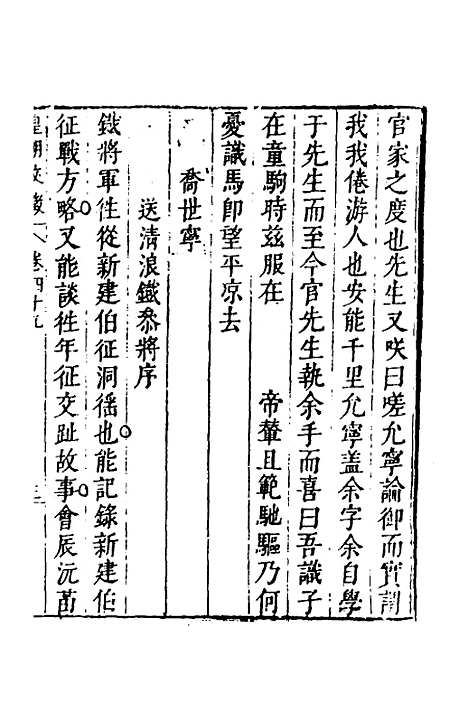 官家之度也先生又咲曰嗟允寧論御而實謂
我我倦游人也安能千里允寧盖余字余自學
于先生而至今官先生執余手而喜曰吾識子
在童駒時兹服在　　帝輦且範馳驅乃何
憂識馬卽望平凉去
喬世寧
送清浪鐵叅將序
鐵將軍徃從新建伯征洞徭也能記錄新建伯
征戰方略又能談徃年征交趾故事會辰沅苗
皇朝文 卷四十九